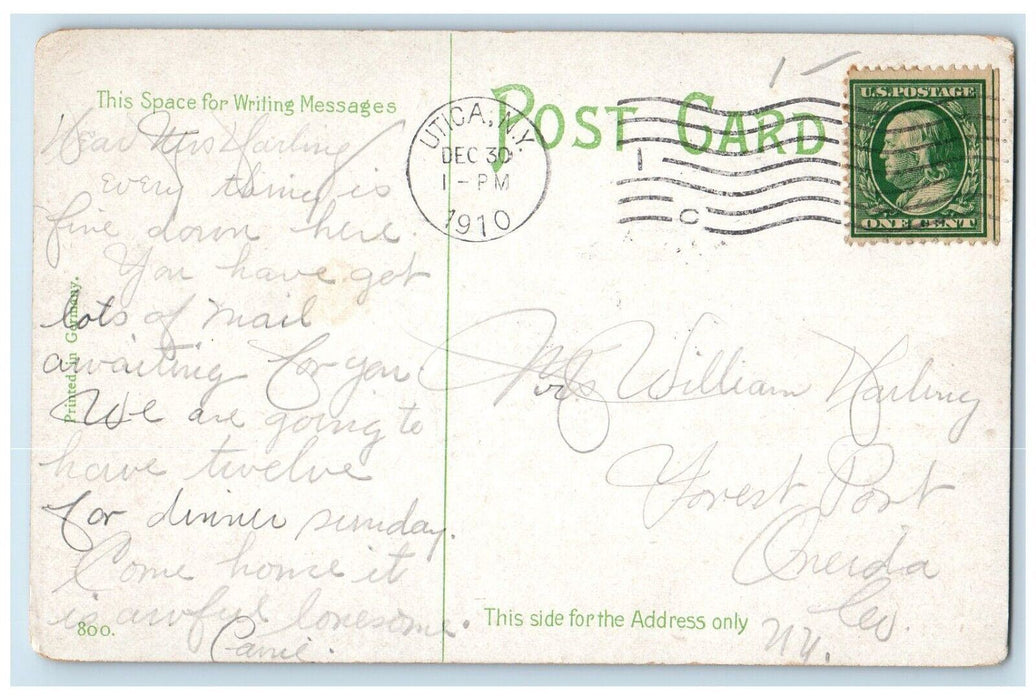 This Space for Writing Messages
Dear Mrs Harling
Every thing is
fine down here.
You have got
lots of mail
awaiting for you
We are going to
have twelve
for dinner sunday.
Come home it
is awful lonesome.
Carrie.
800.
Printed in Germany.
POST CARD
UTICA, N.Y.
DEC 30
1 - PM
1910
1
C
U.S. POSTAGE
ONE CENT
Mrs William Harling
Forest Port
Oneida
Co.
N.Y.
This side for the Address only